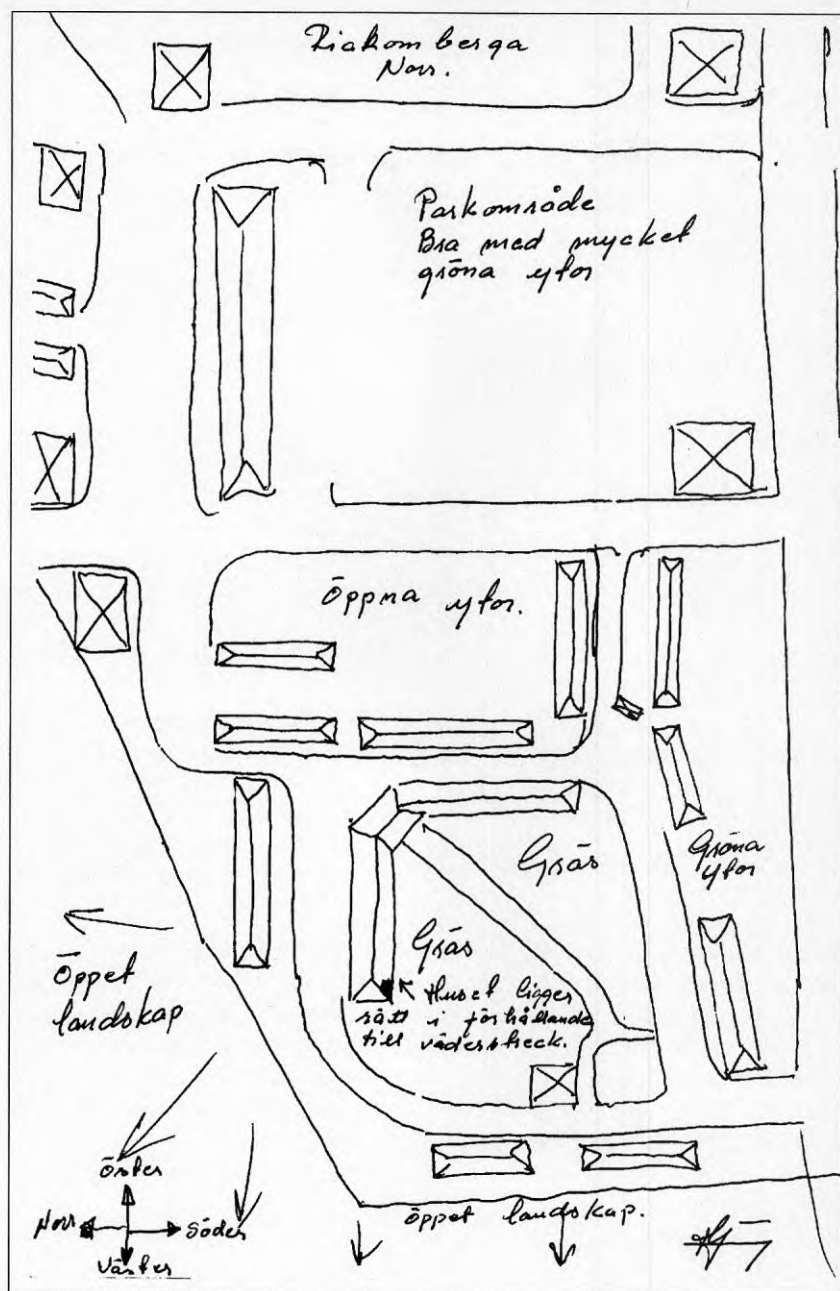 Riakomberga
Norr.
Parkområde
Bra med mycket
gröna ytor
Öppna ytor.
Gräs
Gröna
ytor
Gräs
Huset ligger
rätt i förhållande
till väderstreck.
Öppet
landskap
Öster
Norr
Söder
Väster
Öppet landskap.